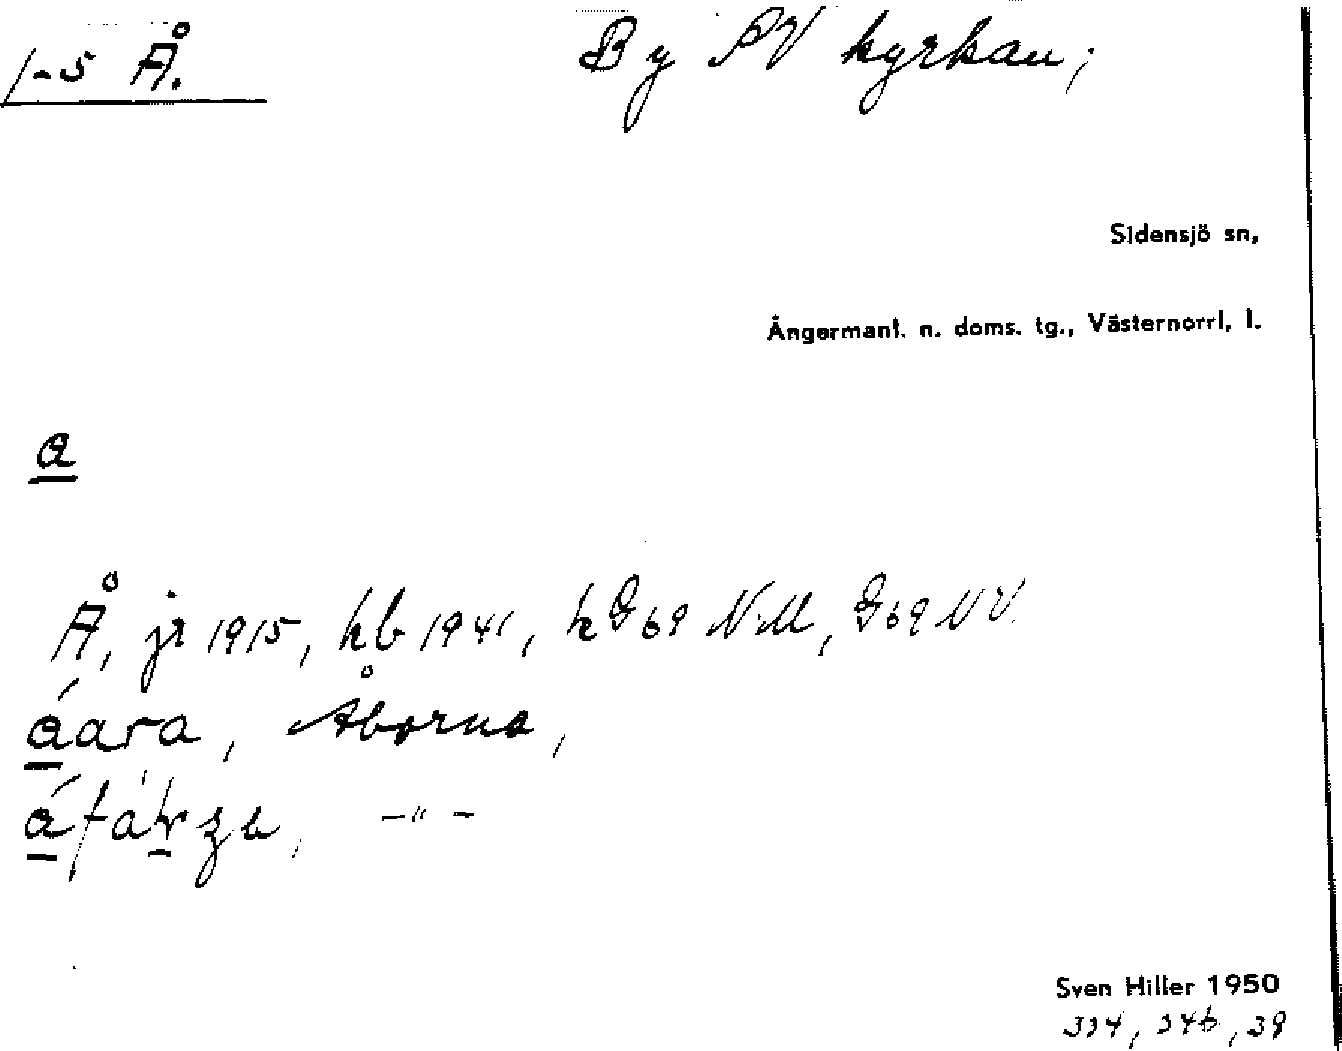 1-5 Å.
By SV kyrkan;
Sidensjö sn,
Ångermanl. n. doms. tg., Västernorrl. l.
a
Å, jr 1915, kb 1941, kG 69 NM, G 69 NV.
áara, Åborna,
–"–
Sven Hiller 1950
334, 346, 39